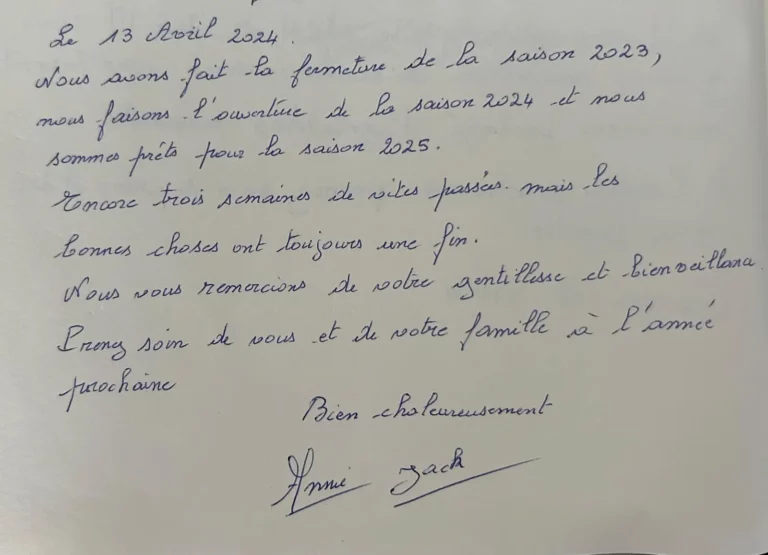 Le 13 Avril 2024.
Nous avons fait la fermeture de la saison 2023,
nous faisons l'ouverture de la saison 2024 et nous
sommes prêts pour la saison 2025.
Encore trois semaines de vites passées. mais les
bonnes choses ont toujours une fin.
Nous vous remercions de votre gentillesse et
Prenez soin de vous et de votre famille à l'année
prochaine
Bien chaleureusement
Annie Jack